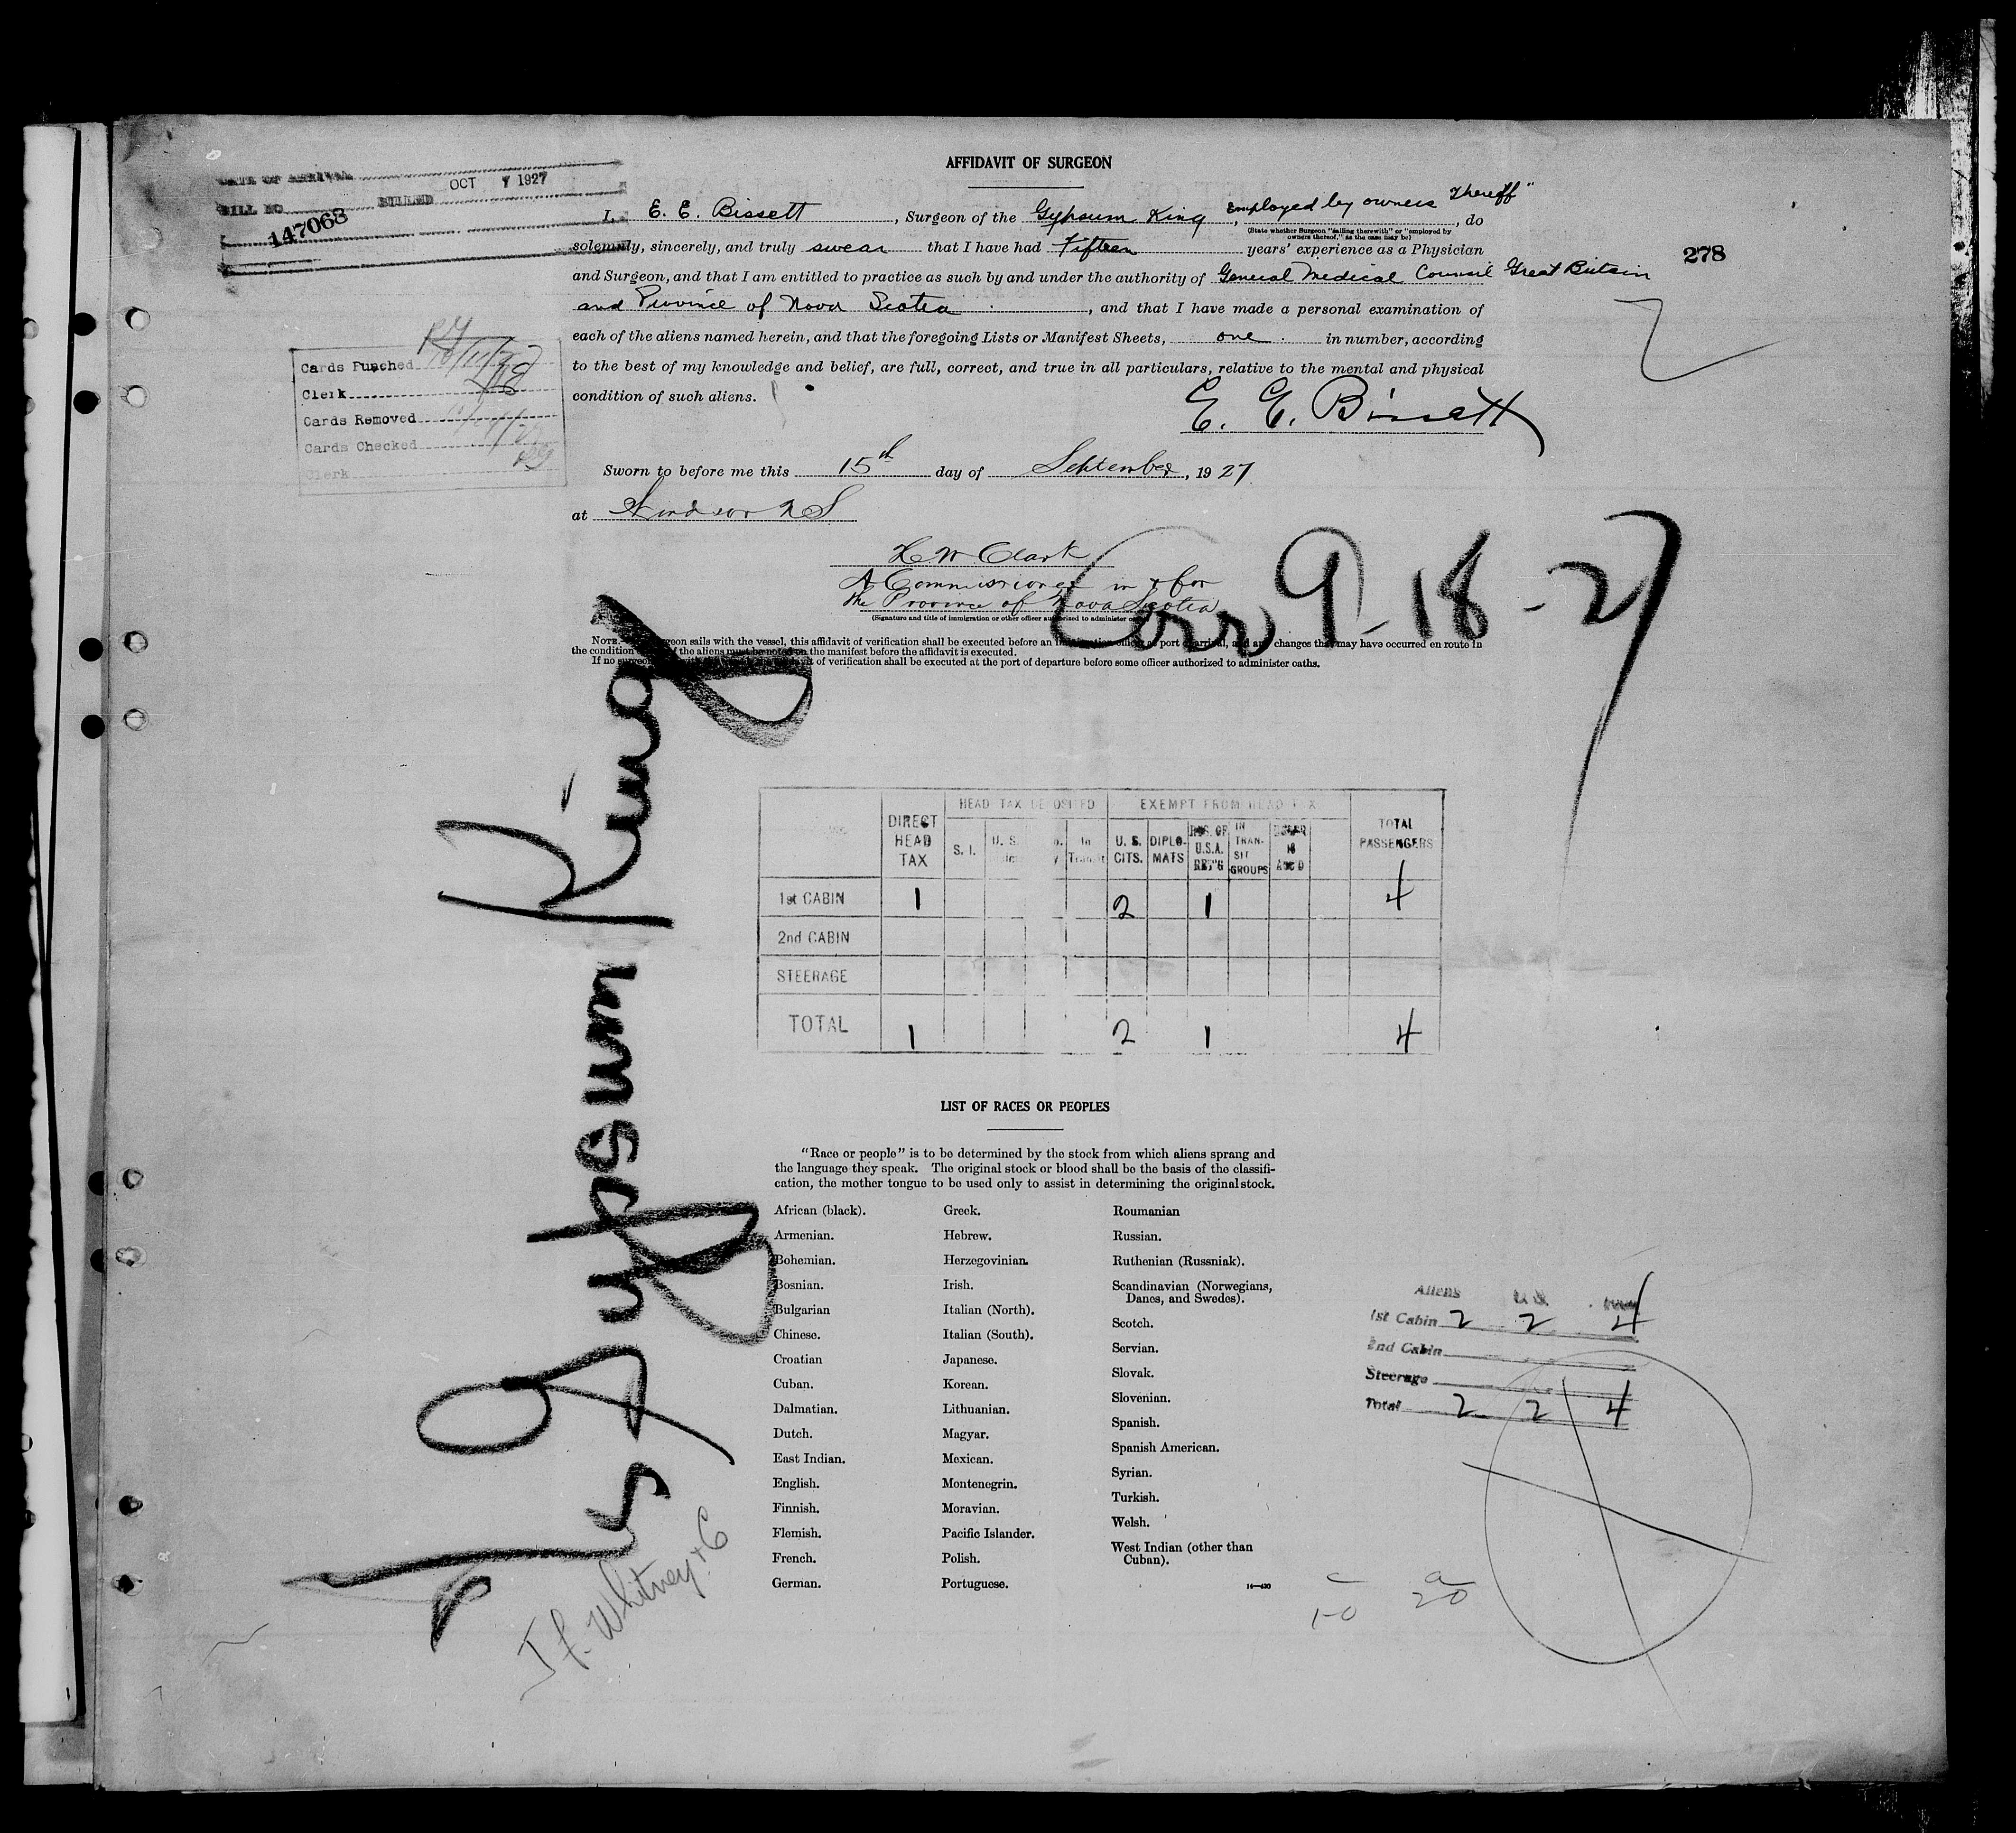 AFFIDAVIT OF SURGEON
DATE OF ARRIVAL
OCT 7 1927
BILL NO. BILLED
147063
I, E. E. Bissett, Surgeon of the Gypsum King, employed by owners thereoff", do
(State whether Surgeon "sailing therewith" or "employed by
owners thereof," as the case may be)
solemnly, sincerely, and truly swear that I have had Fifteen years' experience as a Physician
278
and Surgeon, and that I am entitled to practice as such by and under the authority of General Medical Council Great Britain
and Province of Nova Scotia, and that I have made a personal examination of
each of the aliens named herein, and that the foregoing Lists or Manifest Sheets, one in number, according
to the best of my knowledge and belief, are full, correct, and true in all particulars, relative to the mental and physical
condition of such aliens.
E. E. Bissett
Cards Punched
Clerk
Cards Removed
Cards Checked
Clerk
Sworn to before me this 15th day of September, 1927
at Windsor N S
H W Clark
A Commissioner in & for
the Province of Nova Scotia
(Signature and title of immigration or other officer authorized to administer
9-18-27
NOTE. surgeon sails with the vessel, this affidavit of verification shall be executed before an port arrival, and any changes that may have occurred en route in
the condition of the aliens must be noted on the manifest before the affidavit is executed.
If no surgeon of verification shall be executed at the port of departure before some officer authorized to administer oaths.
Gypsum King
J. F. Whitney & C
DIRECT HEAD TAX
HEAD TAX DEPOSITED
EXEMPT FROM HEAD TAX
TOTAL PASSENGERS
S. I. U. S. In Transit U. S. CITS. DIPLO-MATS RES. OF U.S.A. RET'G IN TRAN-SIT GROUPS
1st CABIN 1 2 1 4
2nd CABIN
STEERAGE
TOTAL 1 2 1 4
LIST OF RACES OR PEOPLES
"Race or people" is to be determined by the stock from which aliens sprang and
the language they speak. The original stock or blood shall be the basis of the classifi-
cation, the mother tongue to be used only to assist in determining the original stock.
African (black).
Armenian.
Bohemian.
Bosnian.
Bulgarian
Chinese.
Croatian
Cuban.
Dalmatian.
Dutch.
East Indian.
English.
Finnish.
Flemish.
French.
German.
Greek.
Hebrew.
Herzegovinian.
Irish.
Italian (North).
Italian (South).
Japanese.
Korean.
Lithuanian.
Magyar.
Mexican.
Montenegrin.
Moravian.
Pacific Islander.
Polish.
Portuguese.
Roumanian
Russian.
Ruthenian (Russniak).
Scandinavian (Norwegians,
Danes, and Swedes).
Scotch.
Servian.
Slovak.
Slovenian.
Spanish.
Spanish American.
Syrian.
Turkish.
Welsh.
West Indian (other than
Cuban).
Aliens U.S.
1st Cabin 2 2 4
2nd Cabin
Steerage
Total 2 2 4